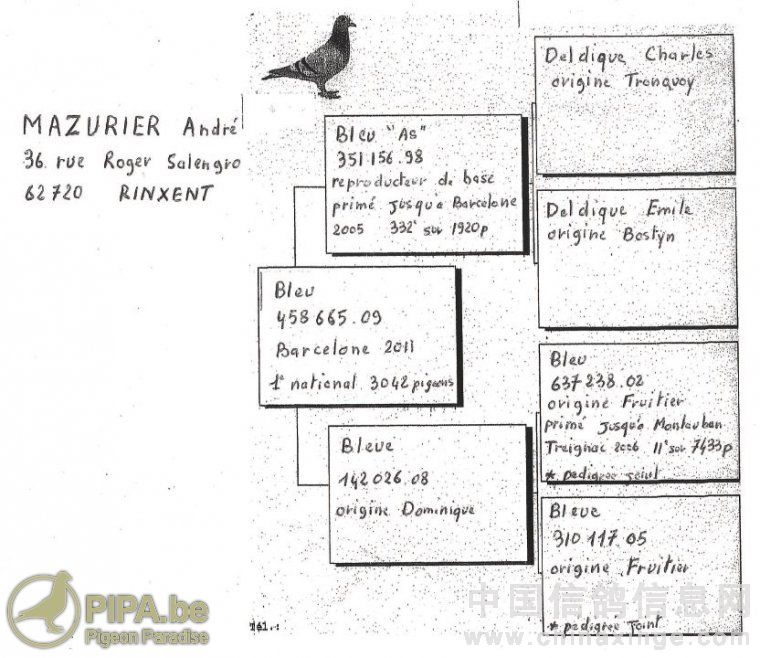 MAZURIER André
36. rue Roger Salengro
62720 RINXENT
Bleu "As"
351 156.98
reproducteur de base
primé jusqua Barcelone
2005 332e sur 1920p
Bleu
458 665.09
Barcelone 2011
1e national 3042 pigeons
Bleue
142 026.08
origine Dominique
Deldique Charles
origine Tronquoy
Deldique Emile
origine Bostyn
Bleu
637 238.02
origine Fruitier
primé jusqua Montauban
Treignac 2006 11e sur 7433p
* pedigree joint
Bleue
310 117.05
origine Fruitier
* pedigree joint
Tél.:
PIPA.be
Pigeon Paradise
中国信鸽信息网
www.chinaxinge.com